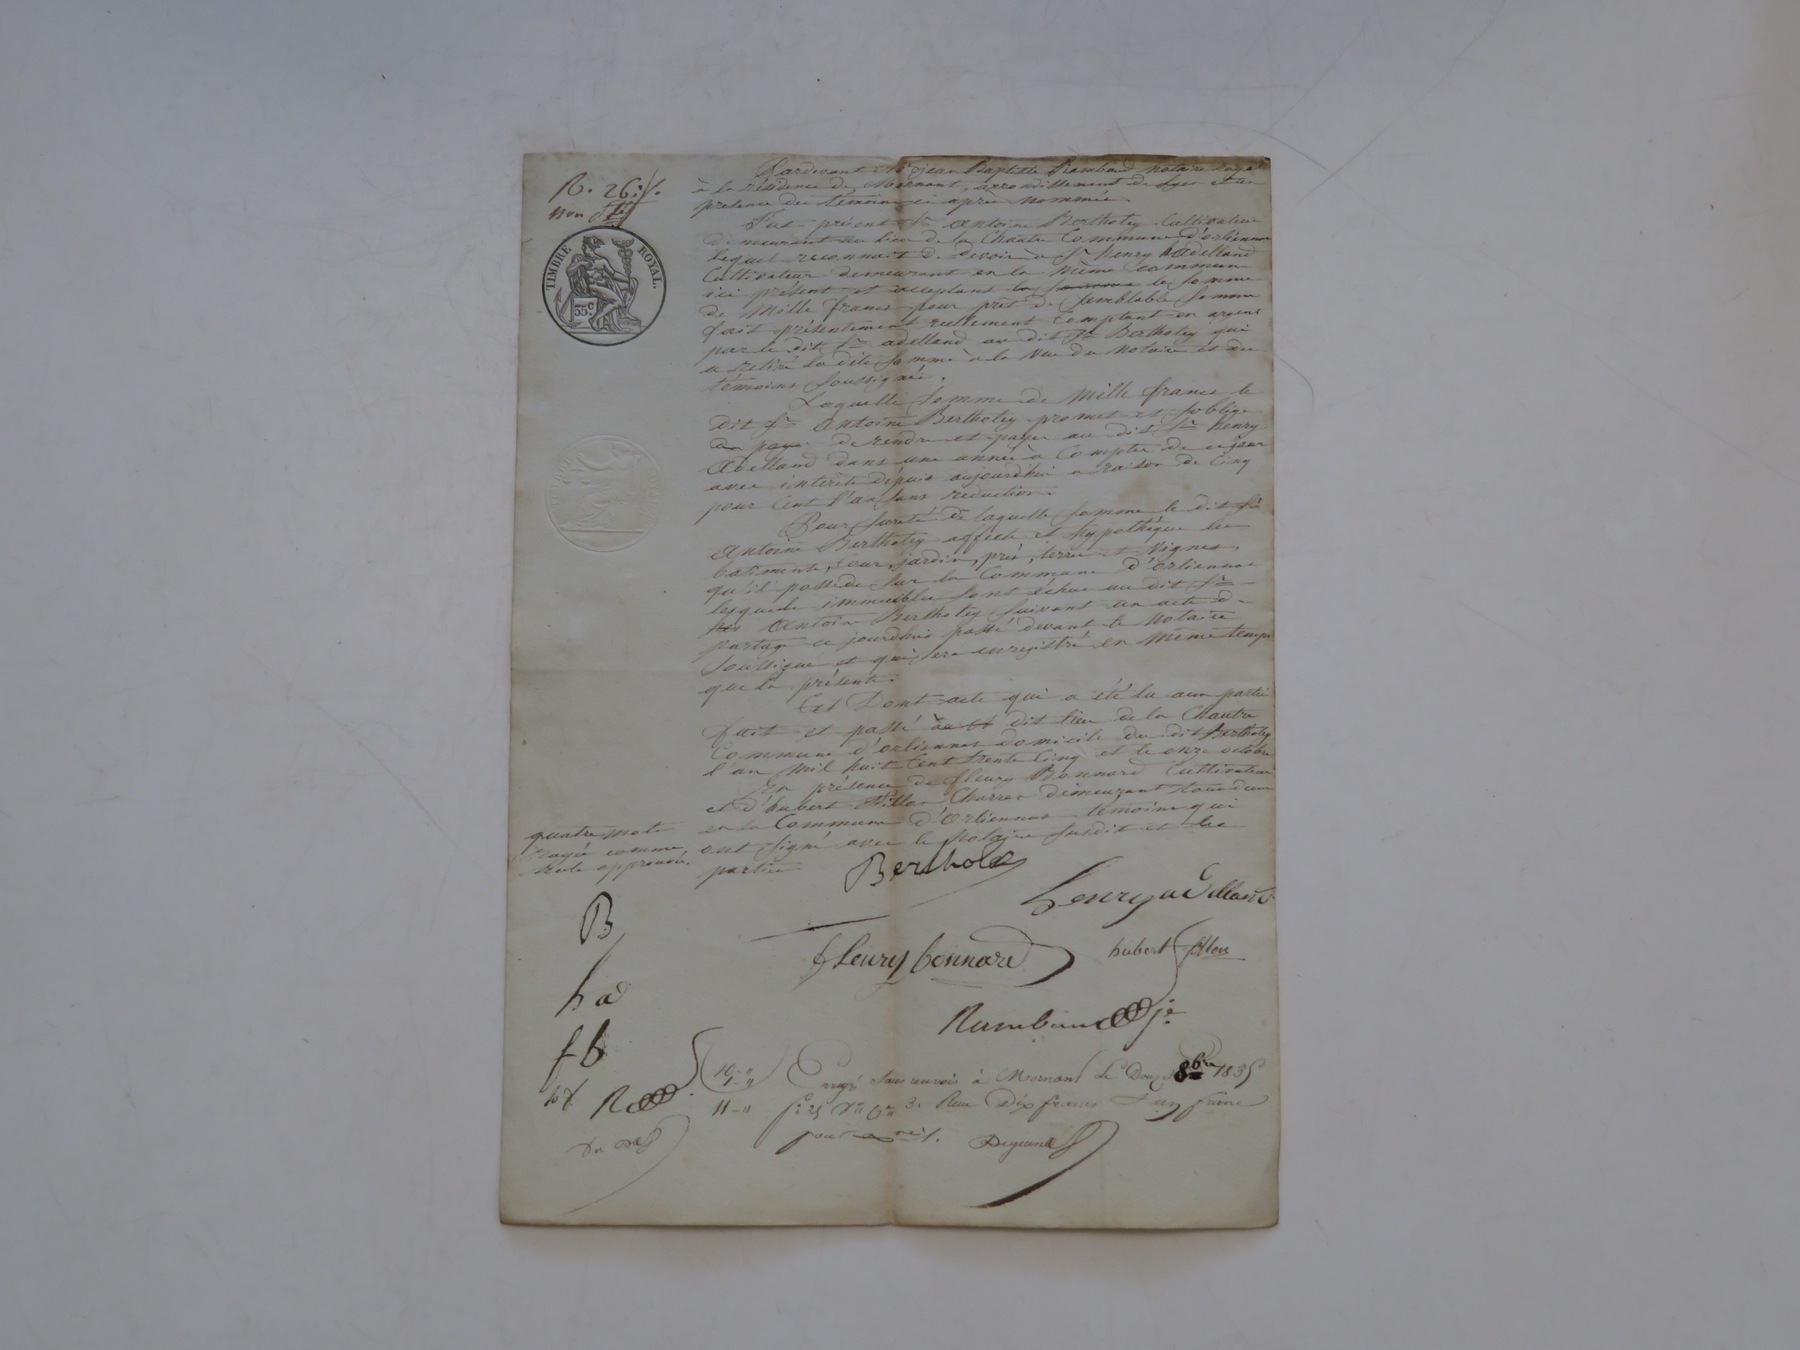 R. 26.
non
TIMBRE ROYAL.
35 c.
Pardevant Me jean Baptiste Rambaud Notaire royal
à la résidence de Mornant, arrondissement de Lyon et en
présence des témoins ci après nommés.
Fut présent Sr Antoine Bertholey Cultivateur
demeurant au lieu de la Chautre Commune d'orliennas
Lequel reconnait devoir à Sr henry Adelland
Cultivateur demeurant en la même commune
ici présent et acceptant la somme la somme
de Mille francs pour prêt de semblable somme
fait présentement réellement comptant en argent
par le dit Sr adelland au dit Sr Bertholey qui
a retiré la dite somme à la vue du Notaire et des
témoins soussignés.
Laquelle somme de Mille francs le
dit Sr Antoine Bertholey promet et s'oblige
de rendre et payer au dit Sr henry
Adelland dans une année à Compter de ce jour
avec intérêts dépuis aujourd'hui a raison de Cinq
pour Cent l'an sans réduction.
Pour sureté de laquelle somme le dit Sr
Antoine Bertholey affecte et hypothèque les
batiments, Cour, jardin, prés, terres et Vignes,
qu'il possede sur la Commune d'Orliennas
lesquels immeubles sont échus au dit Sr
Antoine Bertholey suivant un acte de
partage ce jourdhui passé devant le Notaire
soussigné et qui sera enregistré en même temps
que la présente.
Dont acte qui a été lu aux parties
fait et passé au dit lieu de la Chautre
Commune d'orliennas domicile du dit Bertholey
l'an mil huit Cent trente Cinq et le onze octobre
En présence de fleury Bonnard Cultivateur
et d'hubert Pillon Charron demeurant tous deux
en la Commune d'Orliennas témoins qui
ont signé avec le Notaire susdit et les
parties
quatre mots
rayés comme
nuls approuvés.
Bertholey
henry adelland
fleury bonnard
hubert pillon
Rambaud
B
h a
f b
h p
R
10 - "
1 - "
11 - "
Enregé sans renvois à Mornant Le Douze 8bre 1835
fo 25 Vo Co 3. Reçu Dix francs d'un franc
pour